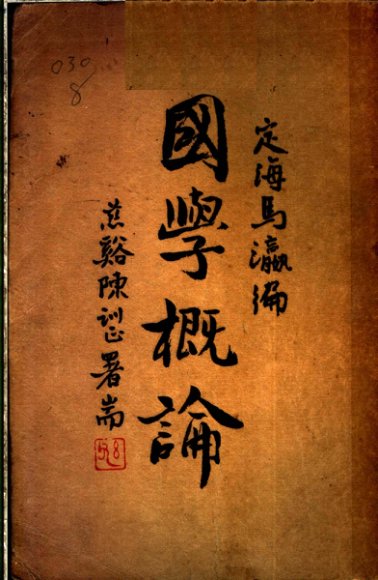 定海馬瀛編
國學概論
慈谿陳訓正署耑
030
8